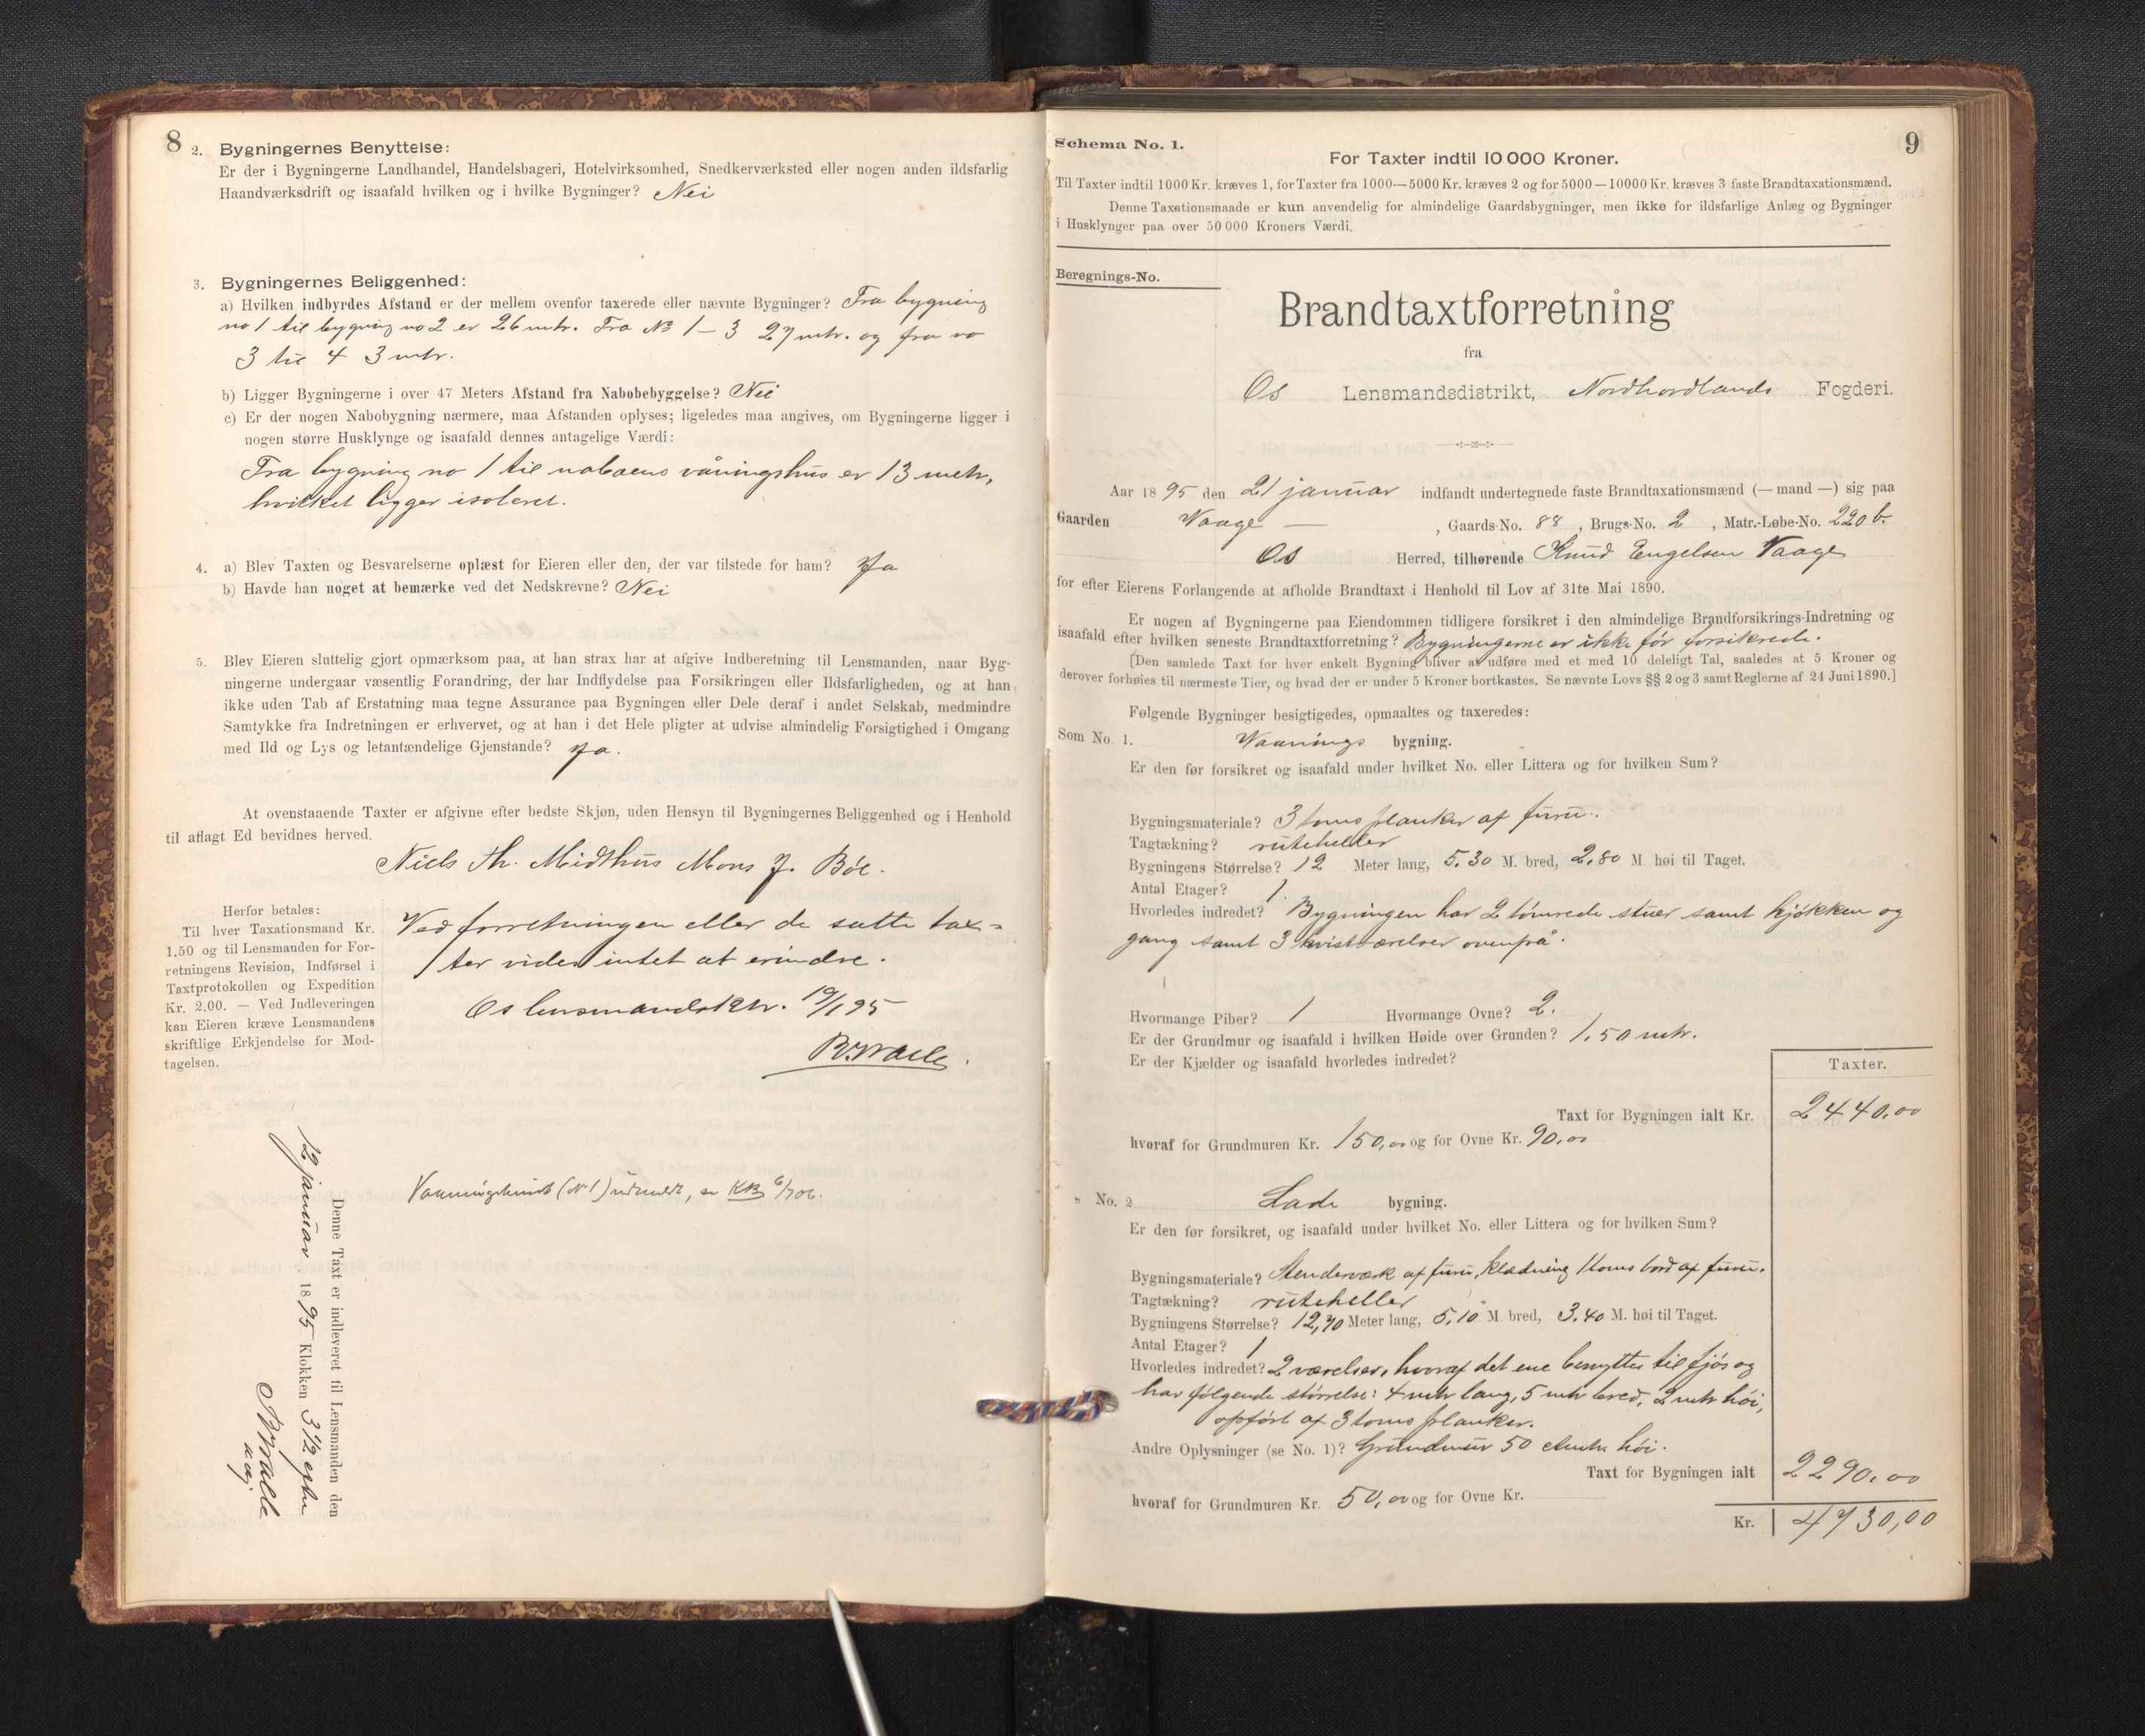 8
2. Bygningernes Benyttelse:
Er der i Bygningerne Landhandel, Handelsbageri, Hotelvirksomhed, Snedkerværksted eller nogen anden ildsfarlig
Haandværksdrift og isaafald hvilken og i hvilke Bygninger? Nei
3. Bygningernes Beliggenhed:
a) Hvilken indbyrdes Afstand er der mellem ovenfor taxerede eller nævnte Bygninger? Fra bygning
no 1 til bygning no 2 er 26 mtr. Fra No 1 – 3 27 mtr. og fra no
3 til 4 3 mtr.
b) Ligger Bygningerne i over 47 Meters Afstand fra Nabobebyggelse? Nei
c) Er der nogen Nabobygning nærmere, maa Afstanden oplyses; ligeledes maa angives, om Bygningerne ligger i
nogen større Husklynge og isaafald dennes antagelige Værdi:
Fra bygning no 1 til naboens våningshus er 13 metr,
hvilket ligger isoleret.
4. a) Blev Taxten og Besvarelserne oplæst for Eieren eller den, der var tilstede for ham? Ja
b) Havde han noget at bemærke ved det Nedskrevne? Nei
5. Blev Eieren sluttelig gjort opmærksom paa, at han strax har at afgive Indberetning til Lensmanden, naar Byg-
ningerne undergaar væsentlig Forandring, der har Indflydelse paa Forsikringen eller Ildsfarligheden, og at han
ikke uden Tab af Erstatning maa tegne Assurance paa Bygningen eller Dele deraf i andet Selskab, medmindre
Samtykke fra Indretningen er erhvervet, og at han i det Hele pligter at udvise almindelig Forsigtighed i Omgang
med Ild og Lys og letantændelige Gjenstande? Ja.
At ovenstaaende Taxter er afgivne efter bedste Skjøn, uden Hensyn til Bygningernes Beliggenhed og i Henhold
til aflagt Ed bevidnes herved.
Niels Th. Midthus Mons J. Böe.
Herfor betales:
Til hver Taxationsmand Kr.
1.50 og til Lensmanden for For-
retningens Revision, Indførsel i
Taxtprotokollen og Expedition
Kr. 2.00. — Ved Indleveringen
kan Eieren kræve Lensmandens
skriftlige Erkjendelse for Mod-
tagelsen.
Ved forretningen eller de satte tax-
ter vides intet at erindre.
Os lensmandsktr. 19/1 95
Vaaningshuset (No 1) udmeldt, se KB 6/706.
Denne Taxt er indleveret til Lensmanden den
12 januar 1895 Klokken 3 1/2 eftm
9
Schema No. 1.
For Taxter indtil 10 000 Kroner.
Til Taxter indtil 1000 Kr. kræves 1, for Taxter fra 1000—5000 Kr. kræves 2 og for 5000—10000 Kr. kræves 3 faste Brandtaxationsmænd.
Denne Taxationsmaade er kun anvendelig for almindelige Gaardsbygninger, men ikke for ildsfarlige Anlæg og Bygninger
i Husklynger paa over 50 000 Kroners Værdi.
Beregnings-No.
Brandtaxtforretning
fra
Os Lensmandsdistrikt, Nordhordlands Fogderi.
Aar 1895 den 21 januar indfandt undertegnede faste Brandtaxationsmænd (—mand—) sig paa
Gaarden Vaage — , Gaards-No. 88 , Brugs-No. 2 , Matr.-Løbe-No. 220 b.
Os Herred, tilhørende Knud Engelsen Vaage
for efter Eierens Forlangende at afholde Brandtaxt i Henhold til Lov af 31te Mai 1890.
Er nogen af Bygningerne paa Eiendommen tidligere forsikret i den almindelige Brandforsikrings-Indretning og
isaafald efter hvilken seneste Brandtaxtforretning? Bygningerne er ikke før forsikrede.
[Den samlede Taxt for hver enkelt Bygning bliver at udføre med et med 10 deleligt Tal, saaledes at 5 Kroner og
derover forhøies til nærmeste Tier, og hvad der er under 5 Kroner bortkastes. Se nævnte Lovs §§ 2 og 3 samt Reglerne af 24 Juni 1890.]
Følgende Bygninger besigtigedes, opmaaltes og taxeredes:
Som No. 1. Vaanings bygning.
Er den før forsikret og isaafald under hvilket No. eller Littera og for hvilken Sum?
Bygningsmateriale? 3 toms planker af furu.
Tagtækning? rüteheller
Bygningens Størrelse? 12 Meter lang, 5,30 M. bred, 2,80 M. høi til Taget.
Antal Etager? 1.
Hvorledes indredet? Bygningen har 2 tömrede stuer samt kjökken og
gang samt 3 kvistværelser ovenpå.
Hvormange Piber? 1 Hvormange Ovne? 2.
Er der Grundmur og isaafald i hvilken Høide over Grunden? 1,50 mtr.
Er der Kjælder og isaafald hvorledes indredet?
Taxter.
Taxt for Bygningen ialt Kr. 2440,00
hvoraf for Grundmuren Kr. 150,00 og for Ovne Kr. 90,00
" No. 2 Lade bygning.
Er den før forsikret, og isaafald under hvilket No. eller Littera og for hvilken Sum?
Bygningsmateriale? Stenderværk af furu, klædning 1 toms bord af furu.
Tagtækning? rüteheller
Bygningens Størrelse? 12,70 Meter lang, 5,10 M. bred, 3,40 M. høi til Taget.
Antal Etager? 1
Hvorledes indredet? 2 værelser, hvoraf det ene benyttes til fjös og
har følgende størrelse: 4 mtr lang, 5 mtr bred, 2 mtr höi,
opfört af 3 toms planker.
Andre Oplysninger (se No. 1)? Grundmur 50 höi.
Taxt for Bygningen ialt 2290,00
hvoraf for Grundmuren Kr. 50,00 og for Ovne Kr.
Kr. 4730,00